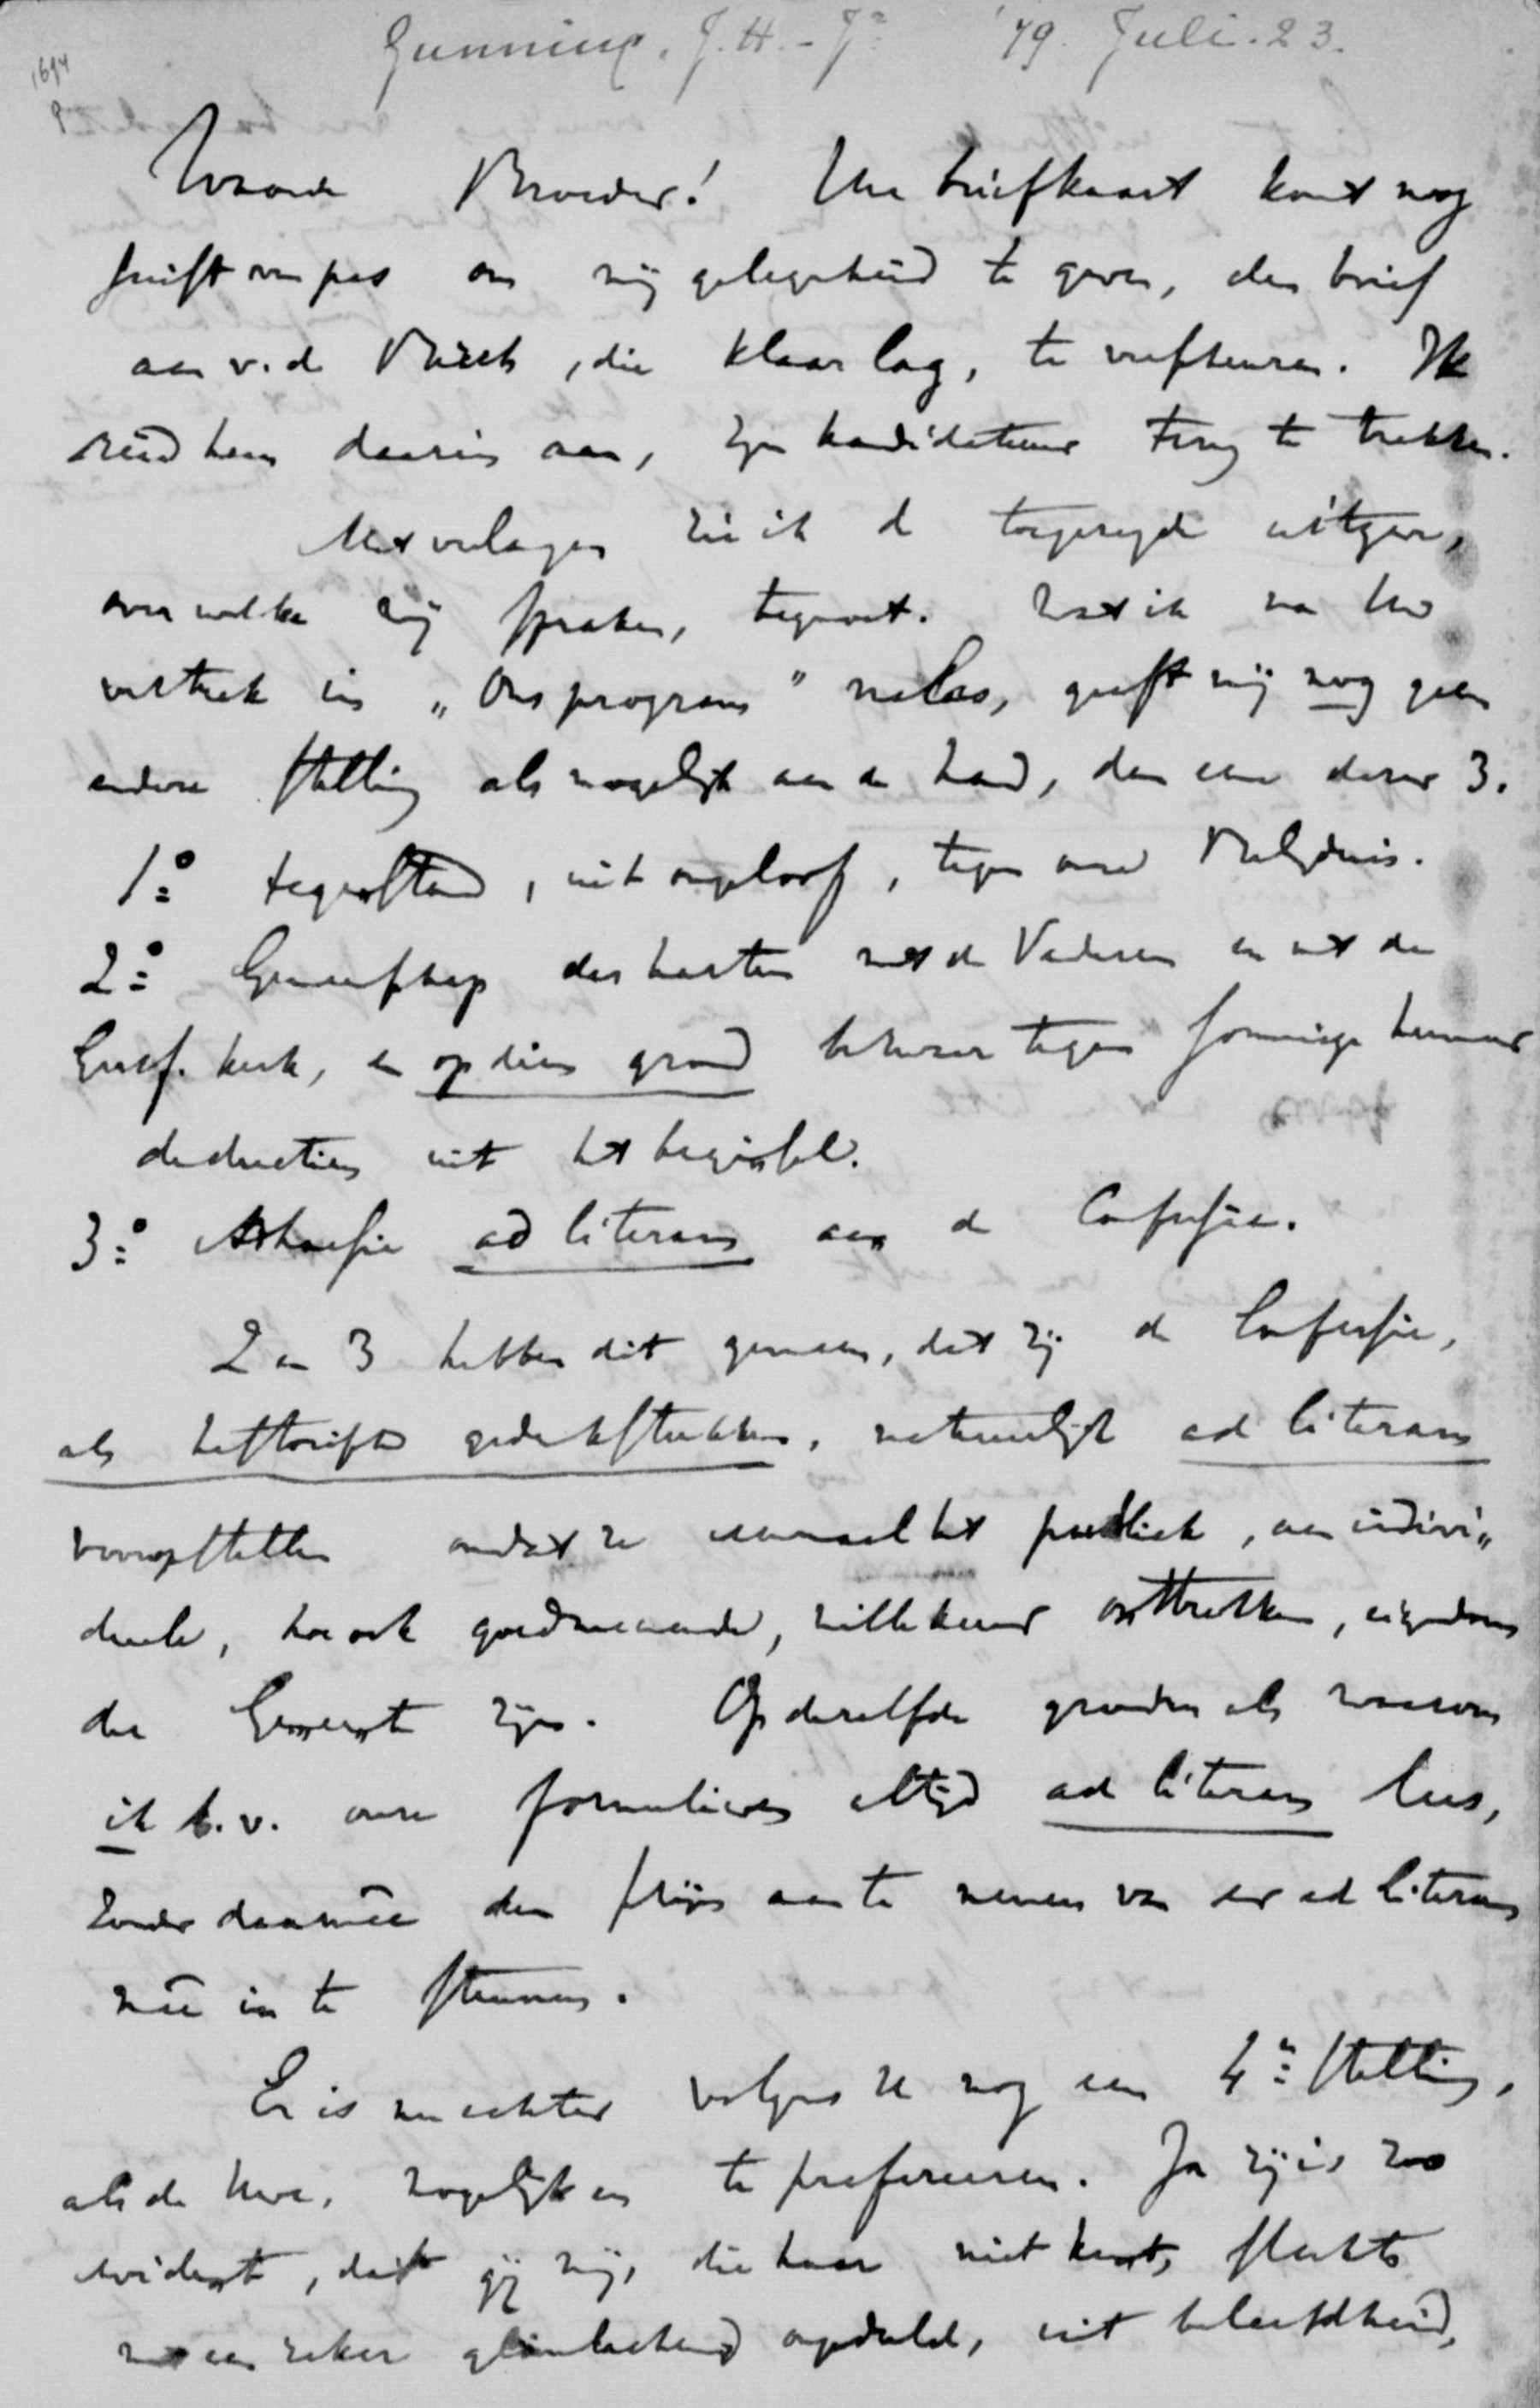 Gunning. J.H. - Jr '79. Juli. 23.
1694
Waarde Broeder! Uw briefkaart komt nog
juist van pas om mij gelegenheid te geven, den brief
aan v.d. , die klaar lag, te versturen. Ik
reid hem daarin aan, zijn kandidatuur terug te trekken.
Met verlangen zie ik de toegezegde uitgave,
over welke wij spraken, tegemoet. Wat ik na Uw
vertrek in „Ons program" nalas, geeft mij nog geen
andere stelling als mogelijk aan de hand, dan eene dezer 3.
1º tegenstand, uit ongeloof, tegen onze Belijdenis.
2º Gemeenschap des harten met de Vaderen en met de
Geref. kerk, en op dien grond bezwaar tegen sommige hunner
deductien uit het beginsel.
3º Adhaesie ad literam aan de Confessie.
2 en 3 hebben dit gemeen, dat zij de Confessie,
als historische gedenkstukken, natuurlijk ad literam
vooropstellen omdat ze eenmaal het publiek, aan indivi„
dueele, hoe ook goedmeenende, willekeur onttrokken, eigendom
der Gemeente zijn. Op dezelfde gronden als waarom
ik b.v. onze formulieren altijd ad literam lees,
zonder daarmee den schijn aan te nemen van er ad literam
mee in te stemmen.
Er is nu echter volgens U nog een 4e stelling,
als de Uwe, mogelijk en te prefereeren. Ja zij is zoo
evident, dat gij mij, die haar niet kent, slechts
met een zeker glimlachend , uit beleefdheid,